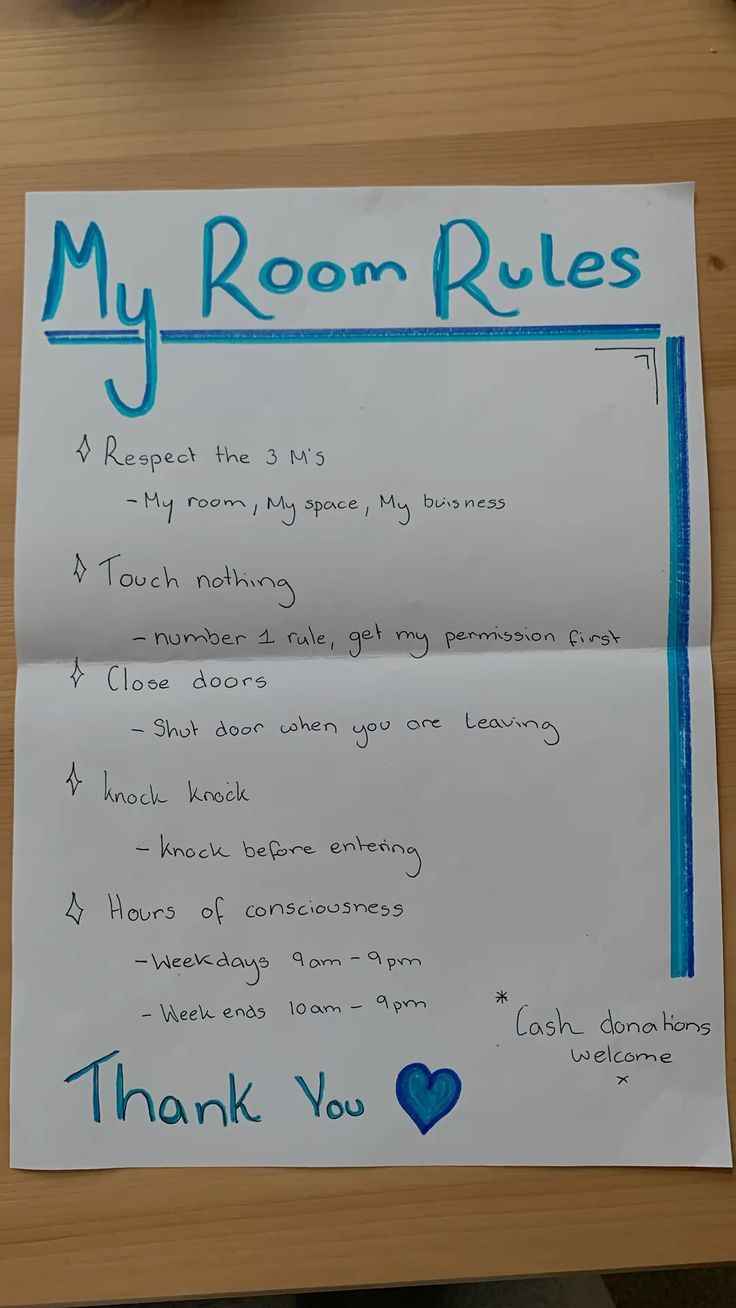 My Room Rules
Respect the 3 M's
- My room, My space, My buisness
Touch nothing
- number 1 rule, get my permission first
Close doors
- Shut door when you are leaving
knock knock
- knock before entering
Hours of consciousness
- Weekdays 9am - 9pm
- Week ends 10am - 9pm
* Cash donations
welcome
x
Thank You